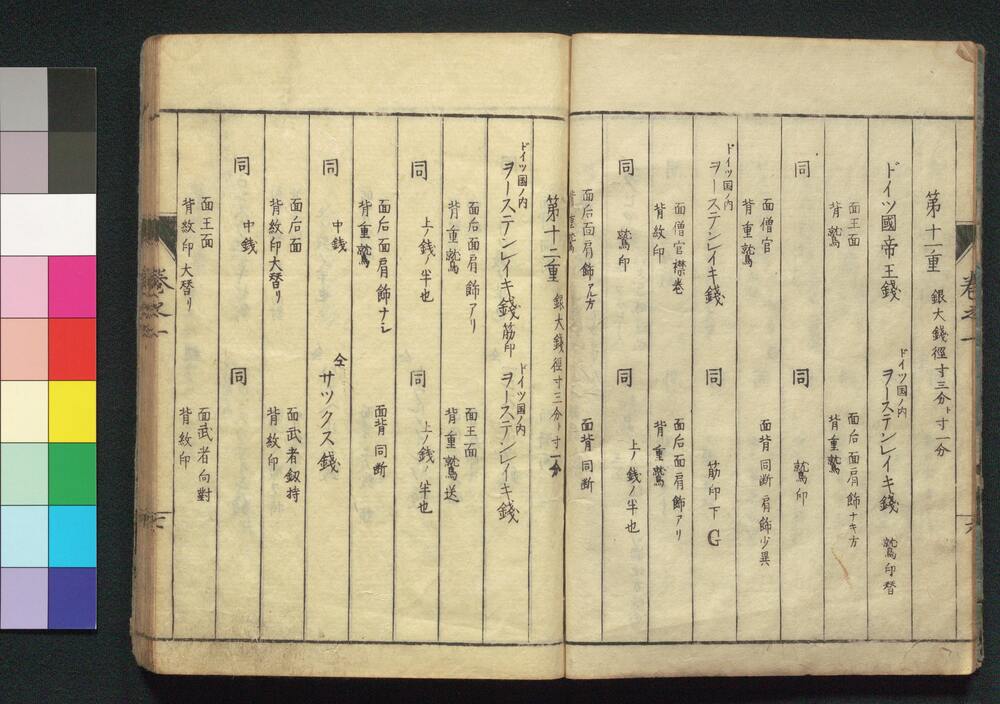 第十一重 銀大錢徑寸三分ト寸一分
ドイツ國帝王錢
ドイツ国ノ内
ヲーステンレイキ錢 鷲印替
面王面
背鷲
面后面肩飾ナキ方
背重鷲
同
同 鷲印
面僧官
背重鷲
面背同断肩飾少異
ドイツ国ノ内
ヲーステンレイキ錢
同 筋印下G
面僧官襟卷
背紋印
面后面肩飾アリ
背重鷲
同 鷲印
同 上ノ錢ノ半也
面后面肩飾アル方
背重鷲
面背同断
第十二重 銀大錢徑寸三分ト寸一分
ドイツ国ノ内
ヲーステンレイキ錢 筋印
ドイツ国ノ内
ヲーステンレイキ錢
面后面肩飾アリ
背重鷲
面王面
背重鷲送
同 上ノ錢ノ半也
同 上ノ錢ノ半也
面后面肩飾ナシ
背重鷲
面背同断
同 中錢
仝
サツクス錢
面后面
背紋印大替リ
面武者釼持
背紋印
同 中錢
同
面王面
背紋印大替リ
面武者向對
背紋印
卷之一
六
卷之一